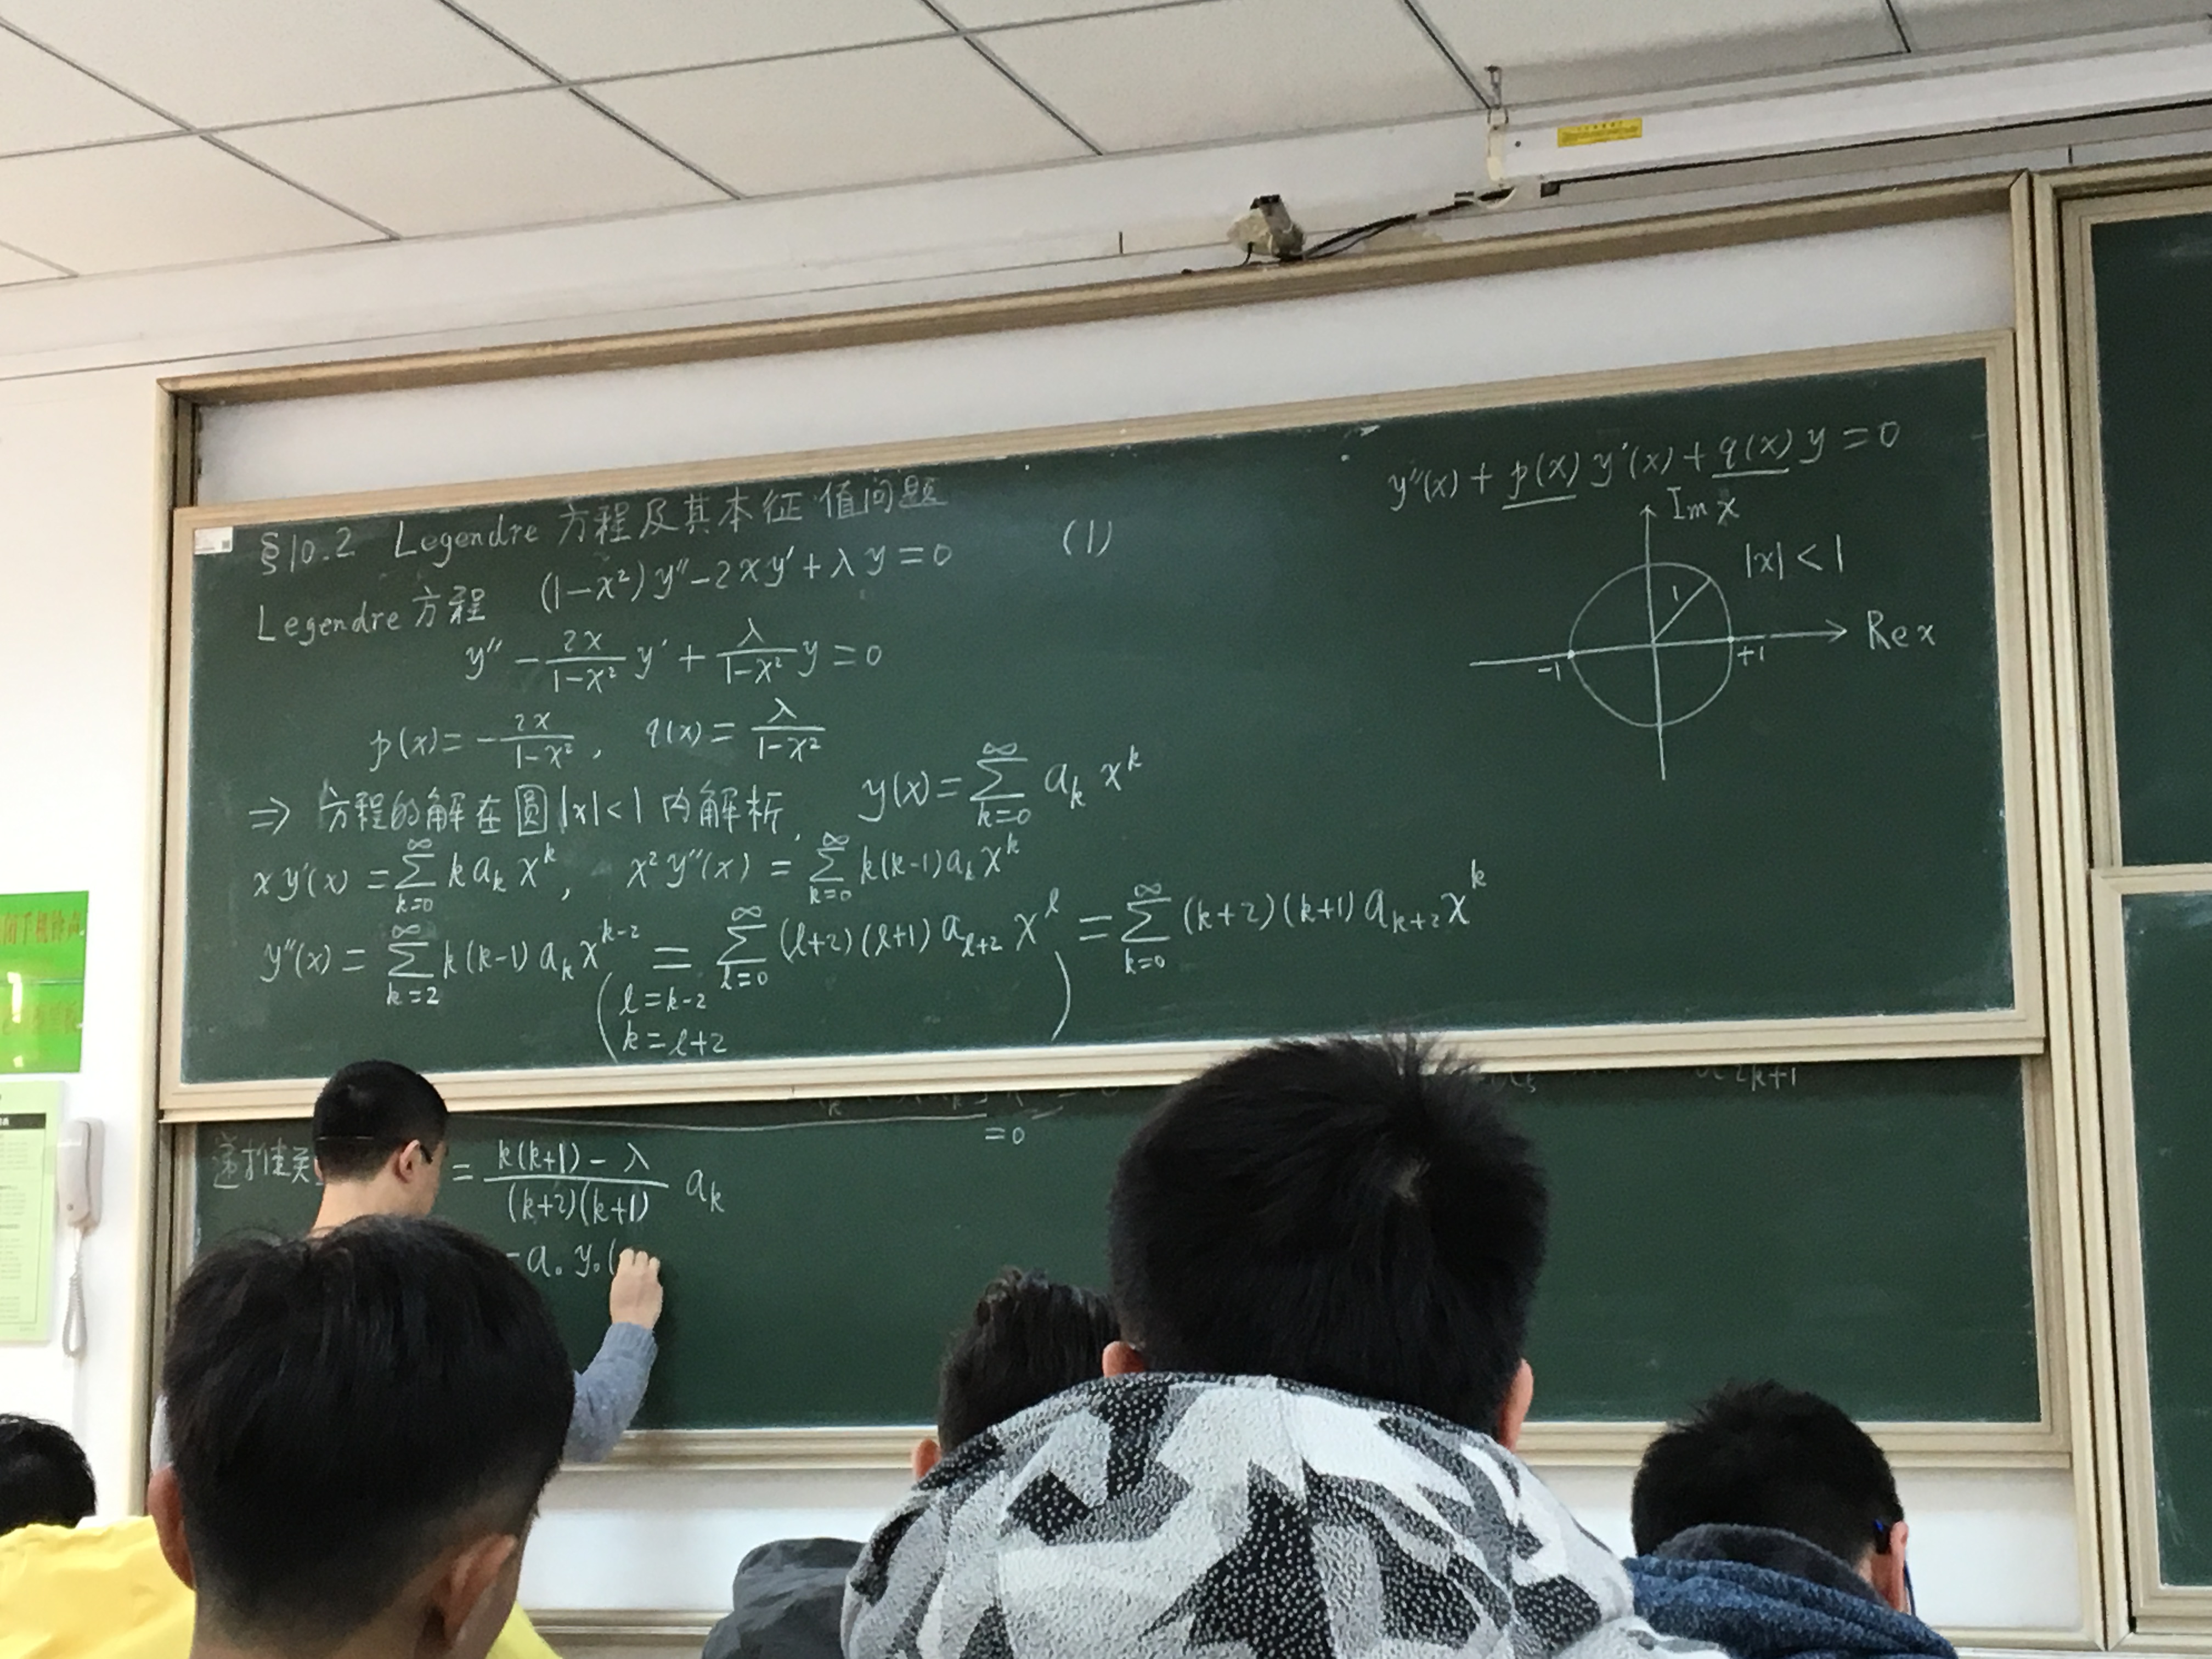 y''(x) + p(x) y'(x) + q(x) y = 0
§10.2 Legendre 方程及其本征值问题
Legendre 方程 (1-x²) y'' - 2xy' + λy = 0 (1)
y'' - \frac{2x}{1-x²} y' + \frac{λ}{1-x²} y = 0
p(x) = -\frac{2x}{1-x²}, q(x) = \frac{λ}{1-x²}
⇒ 方程的解在圆|x|<1内解析, y(x) = \sum_{k=0}^{∞} a_k x^k
x y'(x) = \sum_{k=0}^{∞} k a_k x^k, x² y''(x) = \sum_{k=0}^{∞} k(k-1) a_k x^k
y''(x) = \sum_{k=2}^{∞} k(k-1) a_k x^{k-2} = \sum_{l=0}^{∞} (l+2)(l+1) a_{l+2} x^l = \sum_{k=0}^{∞} (k+2)(k+1) a_{k+2} x^k
( l = k-2
k = l+2 )
Im x
|x| < 1
1
Re x
-1
+1
2k+1
= 0
递推关
= \frac{k(k+1) - λ}{(k+2)(k+1)} a_k
= a₀ y₀(
闭手机铃声